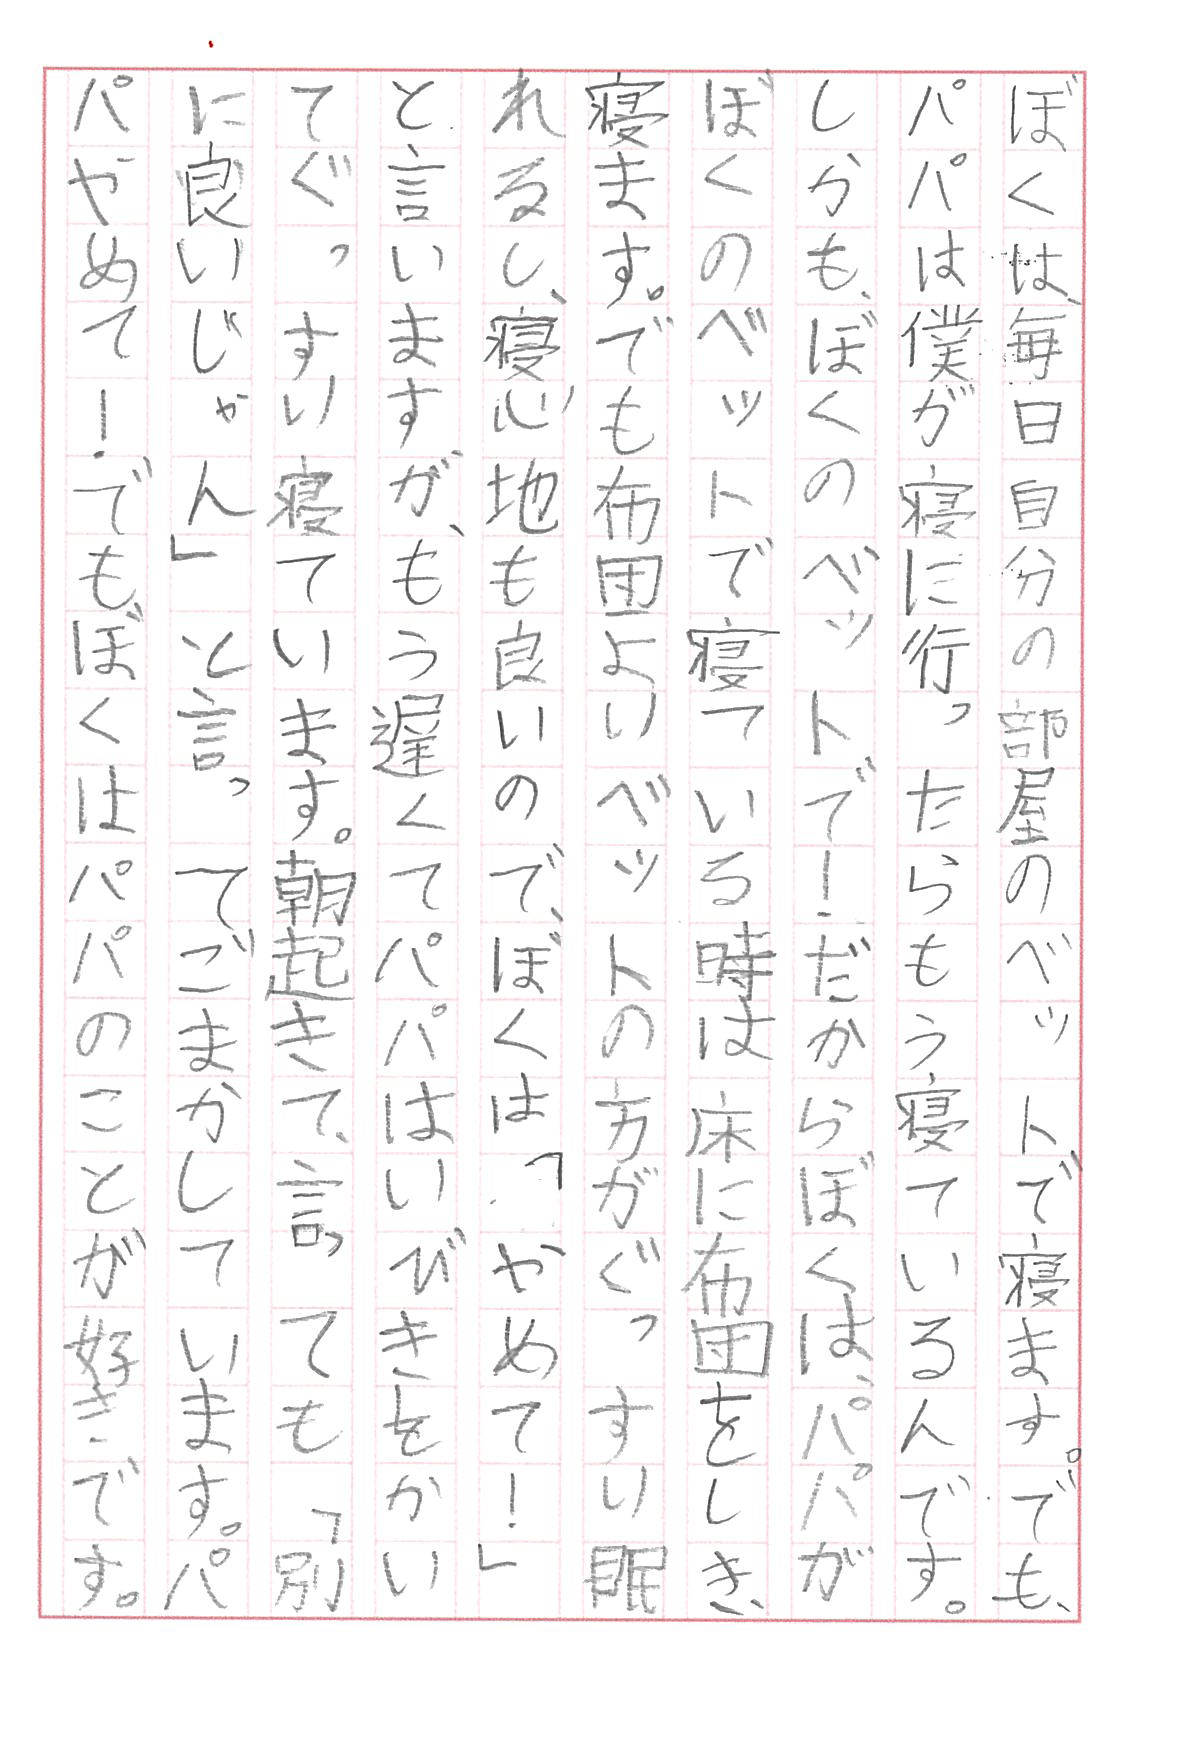 ぼくは、毎日自分の部屋のベットで寝ます。でも、
パパは僕が寝に行ったらもう寝ているんです。
しかも、ぼくのベットで！だからぼくは、パパが
ぼくのベットで寝ている時は床に布団をしき、
寝ます。でも布団よりベットの方がぐっすり眠
れるし、寝心地も良いので、ぼくは「やめて！」
と言いますが、もう遅くてパパはいびきをかい
てぐっすり寝ています。朝起きて、言っても「別
に良いじゃん」と言ってごまかしています。パ
パやめて！でも、ぼくはパパのことが好きです。